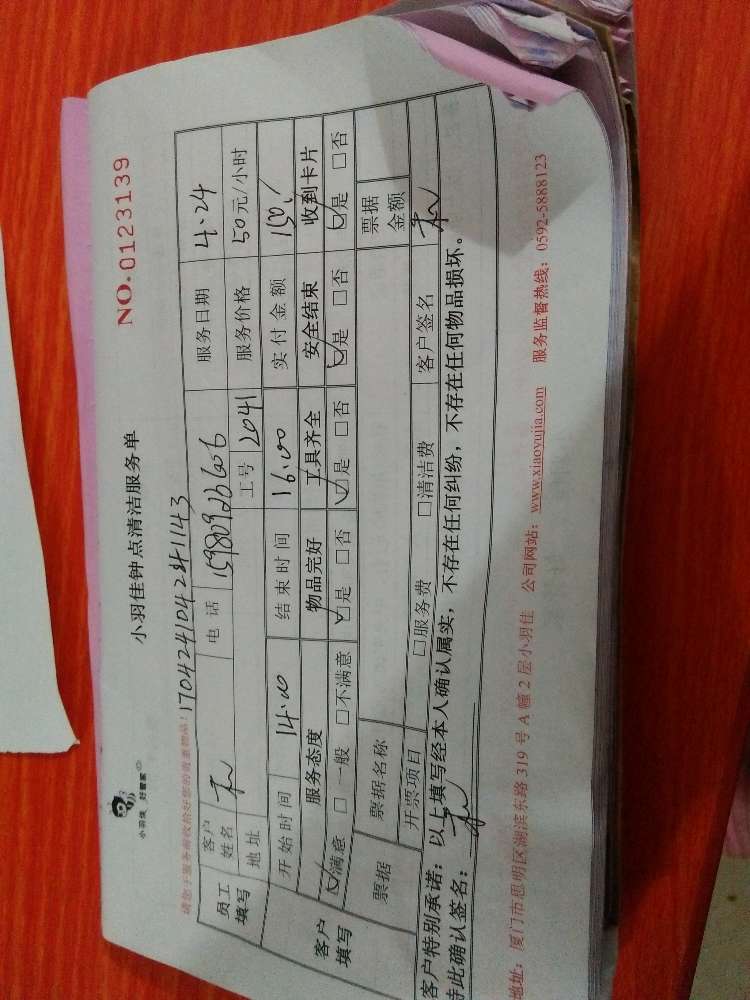 小羽佳 好管家
小羽佳钟点清洁服务单
NO.0123139
请您于服务前收拾好您的贵重物品!
170424104241143
员工填写 客户姓名 电话 15980926606 服务日期 4.24
地址 工号 2041 服务价格 50元/小时
客户填写 开始时间 14:00 结束时间 16:00 实付金额
服务态度 物品完好 工具齐全 安全结束 收到卡片
☑满意 □一般 □不满意 ☑是 □否 ☑是 □否 ☑是 □否 ☑是 □否
票据 票据名称 票据金额
开票项目 □服务费 □清洁费 客户签名
客户特别承诺:以上填写经本人确认属实,不存在任何纠纷,不存在任何物品损坏。
特此确认签名:
地址:厦门市思明区湖滨东路319号A幢2层小羽佳 公司网站:www.xiaoyujia.com 服务监督热线:0592-5888123